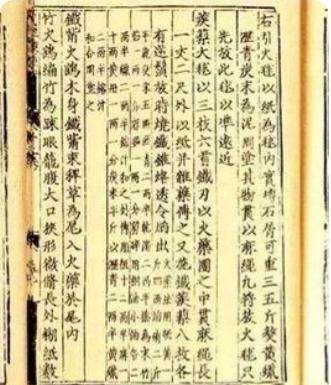 右引火毬以紙為毬內實塼石屑可重三五斤熬黃蠟
瀝青炭末為泥周塗其物貫以麻繩凡將放火毬只
先放此毬以準遠近
蒺藜火毬以三枝六首鐵刃以火藥團之中貫麻繩長
一丈二尺外以紙并雜藥傅之又施鐵蒺藜八枚各
有逆鬚放時燒鐵錐烙透令焰出
火藥法用硫黃一
斤四兩焰硝二斤
半麄炭末五兩瀝青二兩半乾漆二兩半擣為末竹
茹一兩一分麻茹一兩一分剪碎用桐油小油各二
兩半蠟二兩半鎔汁和之外傅用紙十二兩半麻一
十兩黃丹一兩一分炭末半斤以瀝青二兩半黃蠟
二兩半鎔汁
和合周塗之
鐵觜火鷂木身鐵觜束稈草為尾入火藥於尾內
竹火鷂編竹為疎眼籠腹大口狹形微脩長外糊紙數